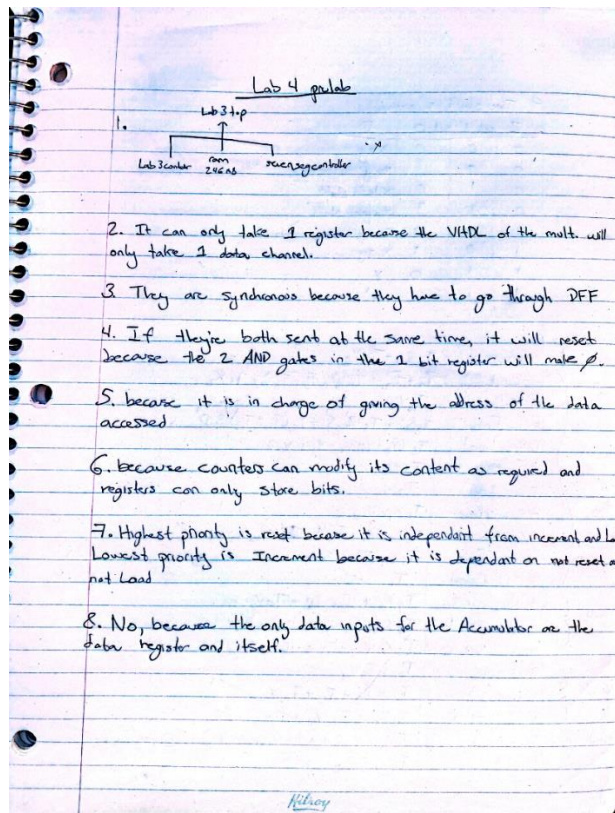 Lab 4 prelab
1.
Lab3top
Lab3contoler ram sevensegcontroller
2. It can only take 1 register because the VHDL of the mult. will
only take 1 data channel.
3. They are synchronois because they have to go through DFF
4. If they're both sent at the same time, it will reset
because the 2 AND gates in the 1 bit register will make 0.
5. because it is in charge of giving the address of the data
accessed
6. because counters can modify its content as required and
registers can only store bits.
7. Highest priority is reset because it is independant from increment and
Lowest priority is Increment because it is dependant on not reset
not Load
8. No, because the only data inputs for the Accumulator are the
data register and itself.
Hilroy